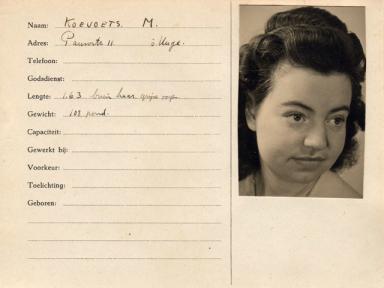 Naam: KOEVOETS. M.
Adres: 11
Telefoon:
Godsdienst:
Lengte: 1.63 bruin haar grijze
Gewicht: 108 pond.
Capaciteit:
Gewerkt bij:
Voorkeur:
Toelichting:
Geboren: